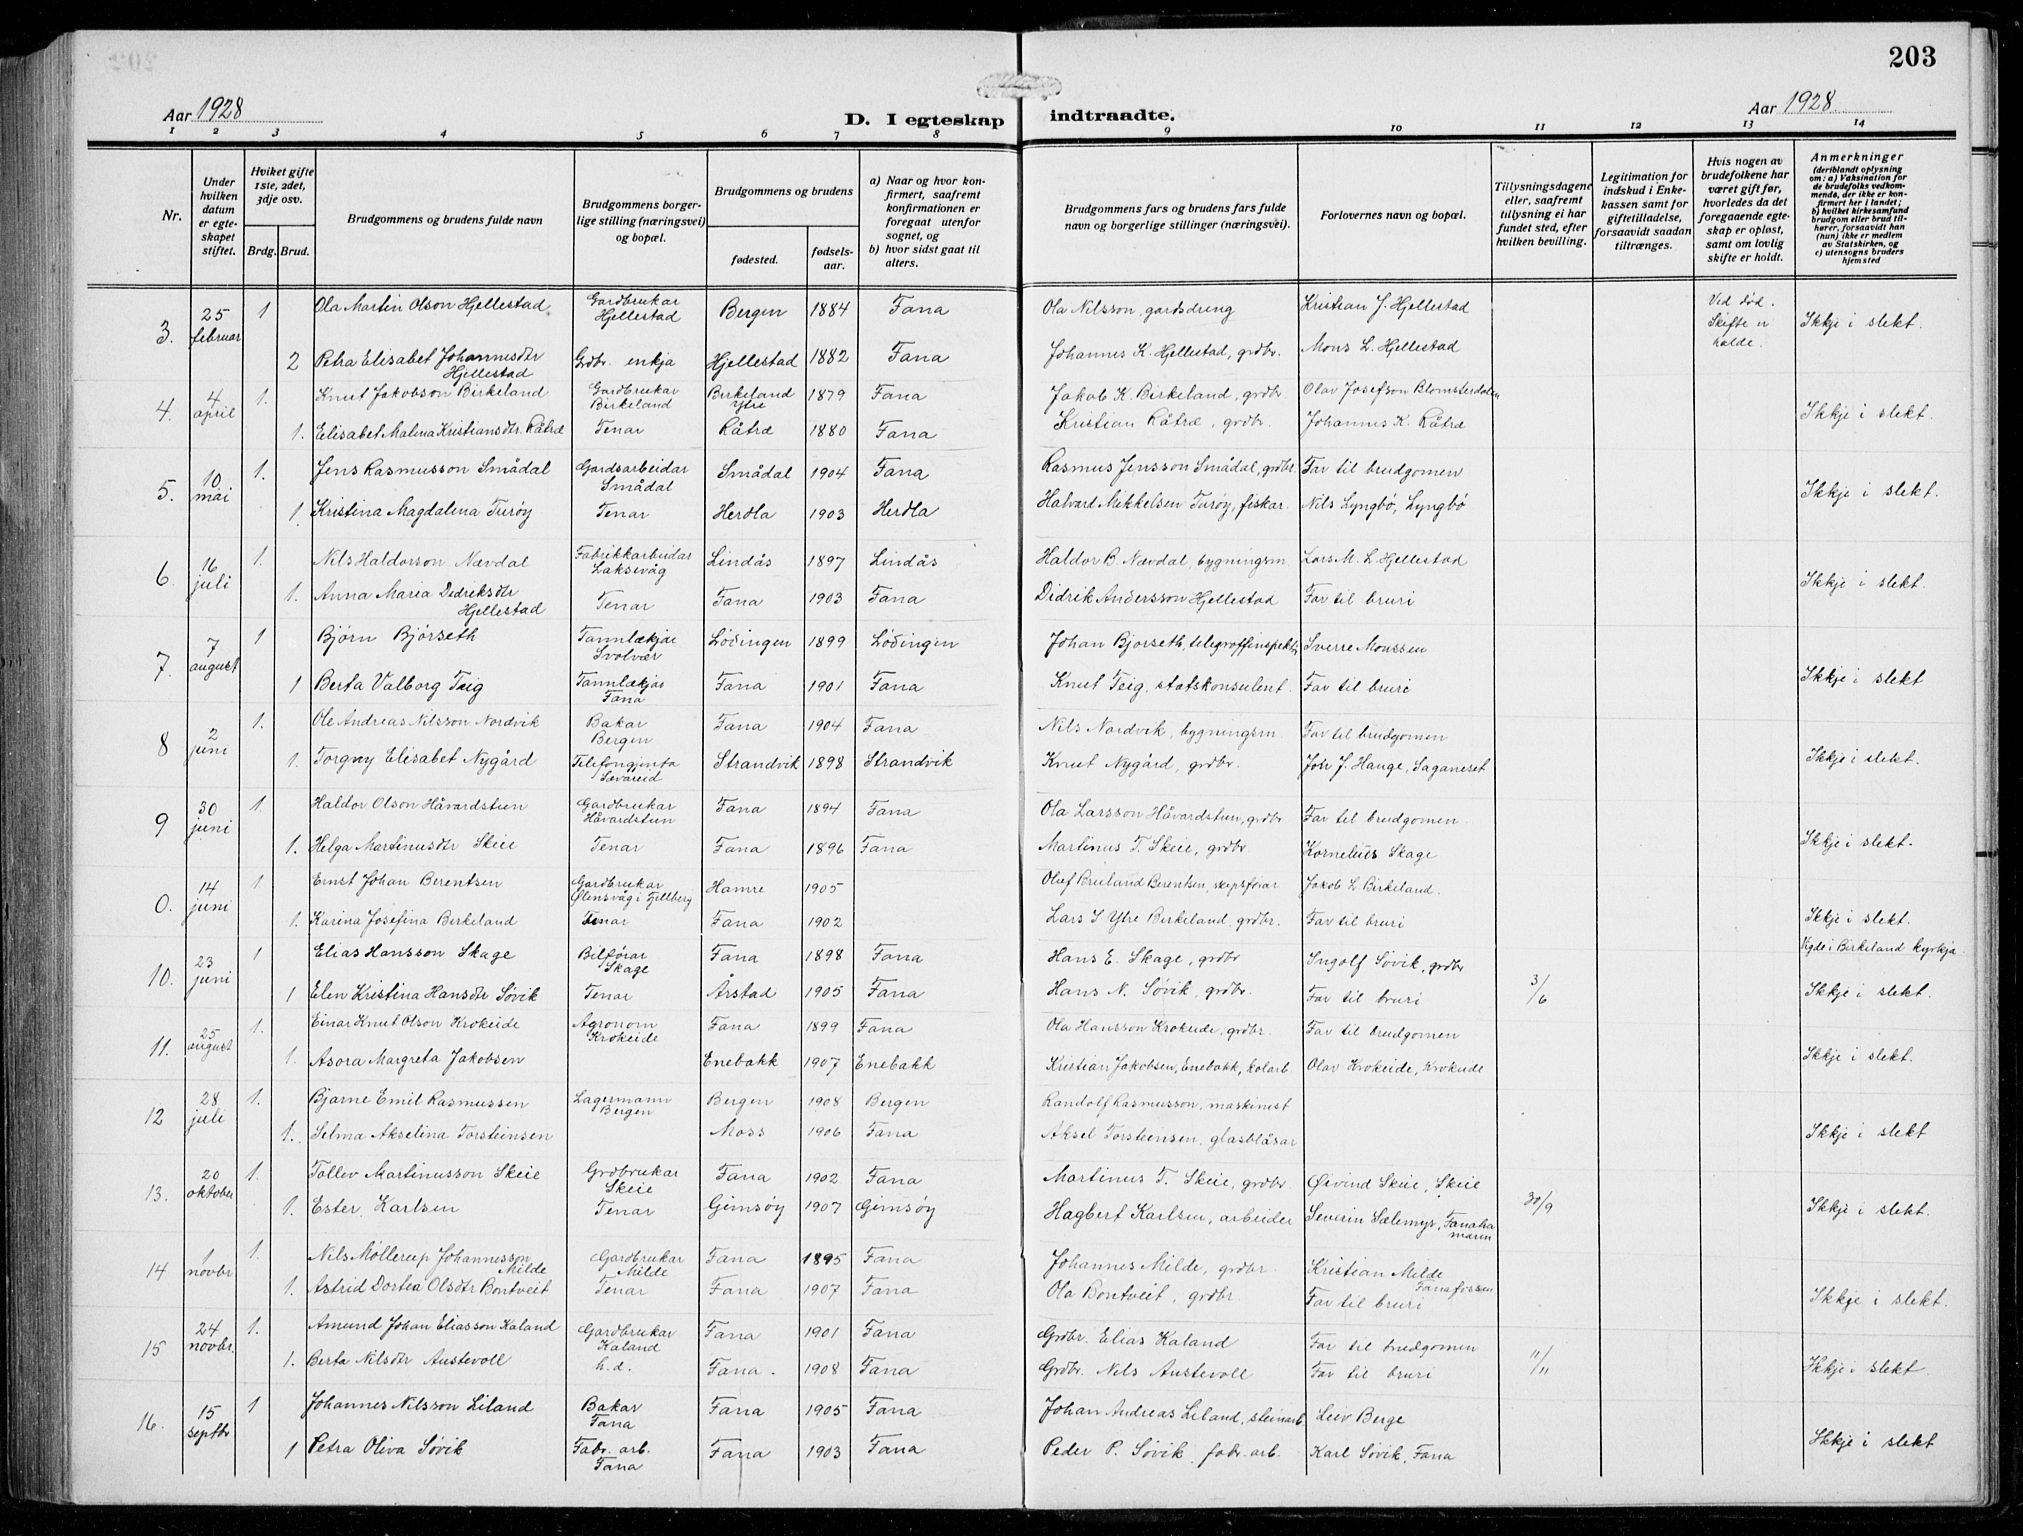 203
Aar 1928
D. I egteskap indtraadte.
Aar 1928
1 2 3 4 5 6 7 8 9 10 11 12 13 14
Nr.
Under hvilken datum er egteskapet stiftet.
Hviket gifte 1ste, 2det, 3dje osv.
Brdg. Brud.
Brudgommens og brudens fulde navn
Brudgommens borgerlige stilling (næringsvei) og bopæl.
Brudgommens og brudens
fødested.
fødselsaar.
a) Naar og hvor konfirmert, saafremt konfirmationen er foregaat utenfor sognet, og
b) hvor sidst gaat til alters.
Brudgommens fars og brudens fars fulde navn og borgerlige stillinger (næringsvei).
Forlovernes navn og bopæl.
Tillysningsdagene eller, saafremt tillysning ei har fundet sted, efter hvilken bevilling.
Legitimation for indskud i Enkekassen samt for giftetilladelse, forsaavidt saadan tiltrænges.
Hvis nogen av brudefolkene har været gift før, hvorledes da det foregaaende egteskap er opløst, samt om lovlig skifte er holdt.
Anmerkninger (deriblandt oplysning om: a) Vaksination for de brudefolks vedkommende, der ikke er konfirmert her i landet; b) hvilket kirkesamfund brudgom eller brud tilhører, forsaavidt han (hun) ikke er medlem av Statskirken, og c) utensogns bruders hjemsted
3. 25 februar 1 Ola Martin Olson Hjellestad Gardbrukar Hjellestad Bergen 1884 Fana Ola Nilsson, gardsdreng Kristian J. Hjellestad Ved død. Skifte er halde. Ikkje i slekt.
2 Petra Elisabet Johannesdtr Hjellestad Grdbr. enkja Hjellestad 1882 Fana Johannes K. Hjellestad, grdbr. Mons L. Hjellestad
4. 4 april 1. Knut Jakobson Birkeland Gardbrukar Birkeland Birkeland Ytre 1879 Fana Jakob K. Birkeland, grdbr. Olav Josefson Blomsterdalen
1. Elisabet Malena Kristiansdtr. Råtræ Tenar Råtræ 1880 Fana Kristian Råtræ, grdbr. Johannes K. Råtræ Ikkje i slekt.
5. 10. mai 1. Jens Rasmusson Smådal Gardsarbeidar Smådal Smådal 1904 Fana Rasmus Jensson Smådal, grdbr. Far til brudgomen
1. Kristina Magdalena Turøy Tenar Herdla 1903 Herdla Halvard Mikkelsen Turøy, fiskar. Nils Lyngbø, Lyngbø Ikkje i slekt.
6. 16 juli 1. Nils Haldorson Nævdal Fabrikkarbeidar Laksevåg Lindås 1897 Lindås Haldor B. Nævdal, bygningsm Lars M. L. Hjellestad
1. Anna Maria Didriksdtr Hjellestad Tenar Fana 1903 Fana Didrik Andersson Hjellestad Far til bruri Ikkje i slekt.
7. 7 august 1 Bjørn Bjørseth Tannlækjar Svolvær Lødingen 1899 Lødingen Johan Bjorseth, telegraffinspektr Sverre Monssen
1 Berta Valborg Teig Tannlækjar Fana Fana 1901 Fana Knut Teig, statskonsulent. Far til bruri Ikkje i slekt
8 2 juni 1. Ole Andreas Nilsson Nordvik Bakar Bergen Fana 1904 Fana Nils Nordvik, bygningsm Far til brudgomen
1. Torgny Elisabet Nygård Telefongjenta Strandvik 1898 Strandvik Knut Nygård, grdbr. Joh J. Hauge, Saganeset Ikkje i slekt.
9 30 juni 1. Haldor Olson Håvardstun Gardbrukar Håvardstun Fana 1894 Fana Ola Larsson Håvardstun, grdbr Far til brudgomen.
1. Helga Martinusdtr Skeie Tenar Fana 1896 Fana Martinus T. Skeie, grdbr. Kornelius Skage Ikkje i slekt.
0. 14 juni 1. Ernst Johan Berentsen Gardbrukar Ølensvåg i Fjellberg Hamre 1905 Oluf Bruland Berentsen, skipsførar Jakob L. Birkeland.
1. Karina Josefina Birkeland Tenar Fana 1902 Lars J Ytre Birkeland, grdbr. Far til bruri Ikkje i slekt.
Vgde i Birkeland kyrkja.
10. 23 juni 1 Elias Hansson Skage Bilførar Skage Fana 1898 Fana Hans E. Skage, grdbr Ingolf Søvik, grdbr
1 Elen Kristina Hansdtr Søvik Tenar Årstad 1905 Fana Hans N. Søvik, grdbr. Far til bruri 3/6 Ikkje i slekt.
11. 25 august 1. Einar Knut Olson Krokeide Agronom Krokeide Fana 1899 Fana Ola Hansson Krokeide, grdbr. Far til brudgomen
1. Asora Margreta Jakobsen Enebakk 1907 Enebakk Kristian Jakobsen, Enebakk, kolarb. Olav Krokeide, Krokeide Ikkje i slekt.
12 28 juli 1. Bjarne Emil Rasmussen Lagermann Bergen Bergen 1908 Bergen Randolf Rasmusson, maskinist
1. Selma Akselina Torsteinsen Moss 1906 Fana Aksel Torsteinsen, glasblåsar Ikkje i slekt
13. 20 oktober 1. Tollev Martinusson Skeie Grdbrukar Skeie Fana 1902 Fana Martinus T. Skeie, grdbr Øivind Skeie, Skeie
1. Ester Karlsen Tenar Gimsøy 1907 Gimsøy Hagbert Karlsen, arbeider Severin Sælemyr, Fanahamaren 30/9 Ikkje i slekt.
14 1 novbr 1. Nils Møllerup Johannesson Milde Gardbrukar Milde Fana 1895 Fana Johannes Milde, grdbr. Kristian Milde Fanafossen
1. Astrid Dortea Olsdtr Bontveit Tenar Fana 1907 Fana Ola Bontveit, grdbr. Far til bruri Ikkje i slekt.
15 24 novbr. 1. Amund Johan Eliasson Kaland Gardbrukar Kaland Fana 1901 Fana Grdbr. Elias Kaland Far til brudgomen
1. Berta Nilsdtr Austevoll h.d. Fana. 1908 Fana Grdbr. Nils Austevoll Far til bruri 11/11 Ikkje i slekt.
16. 15 septbr 1 Johannes Nilsson Liland Bakar Fana Fana 1905 Fana Johan Andreas Liland, steinarb. Leiv Berge
1 Petra Oliva Søvik Fabr. arb. Fana Fana 1903 Fana Peder P. Søvik, fabr. arb. Karl Søvik, Fana Ikkje i slekt